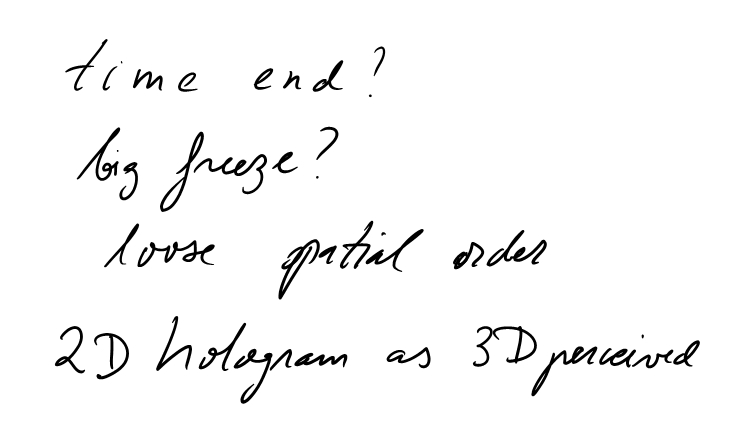 time end?
big freeze?
loose spatial order
2D hologram as 3D perceived